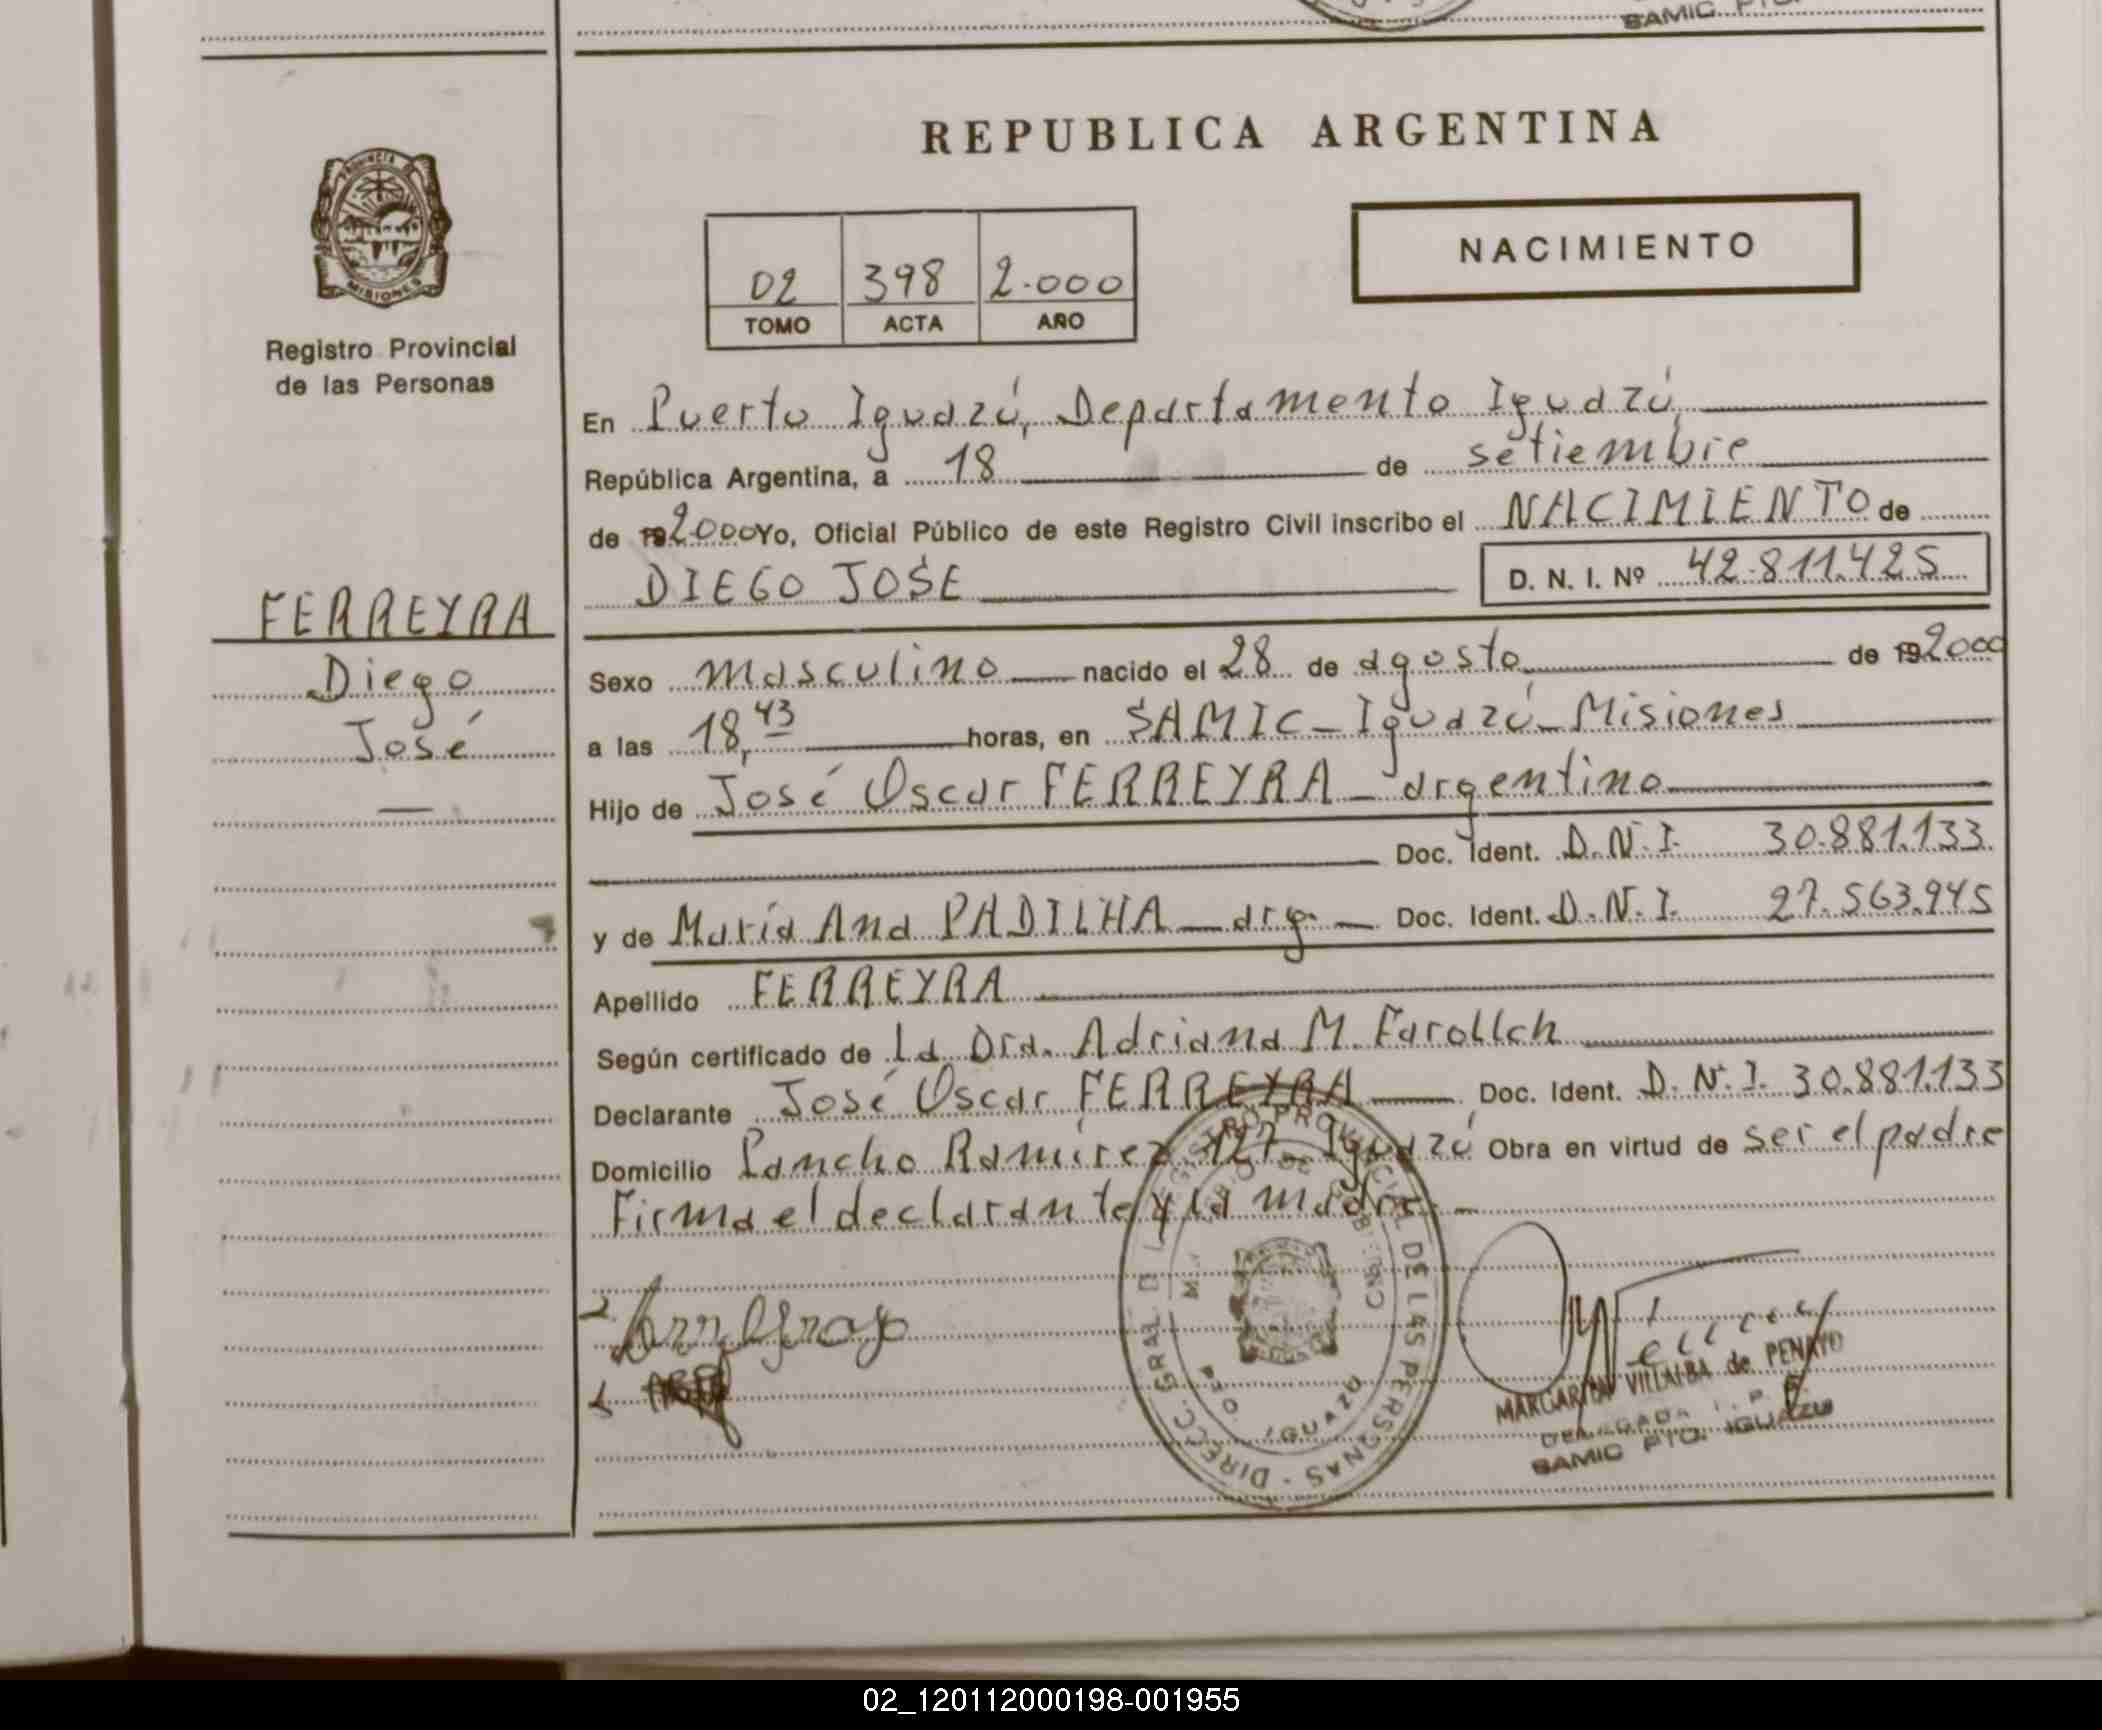 SAMIC PTO.
REPUBLICA ARGENTINA
PROVINCIA DE MISIONES
Registro Provincial
de las Personas
NACIMIENTO
02 398 2.000
TOMO ACTA AÑO
En Puerto Iguazú, Departamento Iguazú,
República Argentina, a 18 de setiembre
de 19 2000 Yo, Oficial Público de este Registro Civil inscribo el NACIMIENTO de
DIEGO JOSE D. N. I. Nº 42.811.425
FERREYRA
Diego
José
Sexo masculino nacido el 28 de agosto de 19 2000
a las 18,43 horas, en SAMIC - Iguazú - Misiones
Hijo de José Oscar FERREYRA - argentino
Doc. Ident. D.N.I. 30.881.133
y de María Ana PADILHA - arg. - Doc. Ident. D.N.I. 27.563.945
Apellido FERREYRA
Según certificado de La Dra. Adriana M.
Declarante José Oscar FERREYRA Doc. Ident. D.N.I. 30.881.133
Domicilio Pancho Ramírez 127 - Iguazú Obra en virtud de ser el padre
Firma el declarante y la madre -
DIRECC. GRAL. DEL REGISTRO PROVINCIAL DE LAS PERSONAS
IGUAZU
MARGARITA VILLALBA de PENAYO
DELEGADA
SAMIC PTO. IGUAZU
02_120112000198-001955